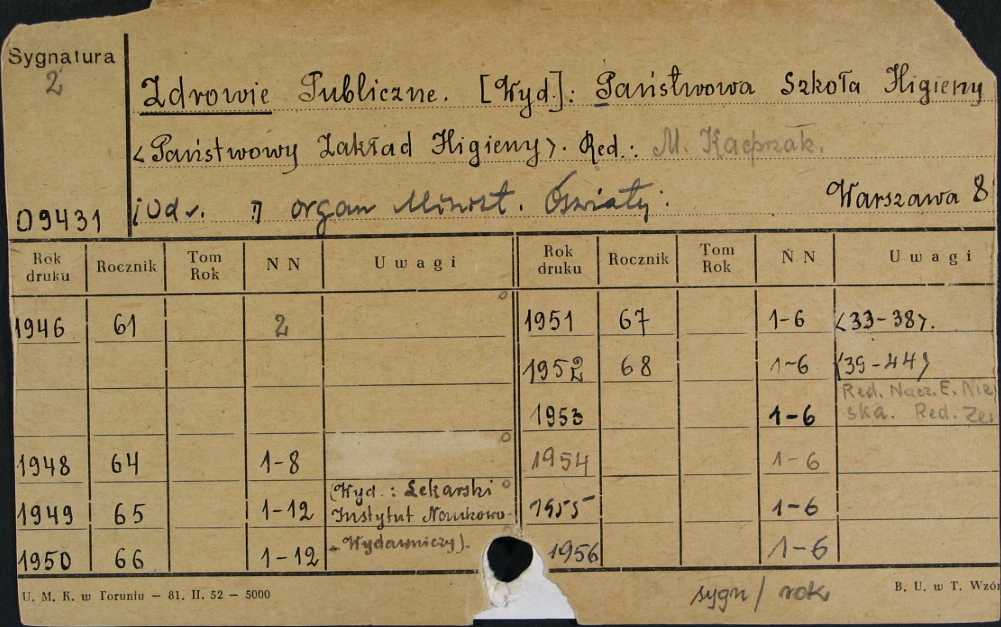 Sygnatura
2
Zdrowie Publiczne. [Wyd.]: Państwowa Szkoła Higieny
<Państwowy Zakład Higieny>. Red.: M. Kacprzak.
09431
organ Minist. Oświaty. Warszawa 8
Rok druku Rocznik Tom Rok N N Uwagi Rok druku Rocznik Tom Rok N N Uwagi
1946 61 2 1951 67 1-6 <33-38>.
1952 68 1-6 <39-44>
Red. Nacz. E.
1953 1-6 ska. Red.
1948 64 1-8 1954 1-6
1949 65 1-12 (Wyd.: Lekarski Instytut Naukowo- 1955 1-6
1950 66 1-12 - Wydawniczy). 1956 1-6
sygn / rok
U. M. K. w Toruniu — 81. II. 52 — 5000 B. U. w T. Wzór